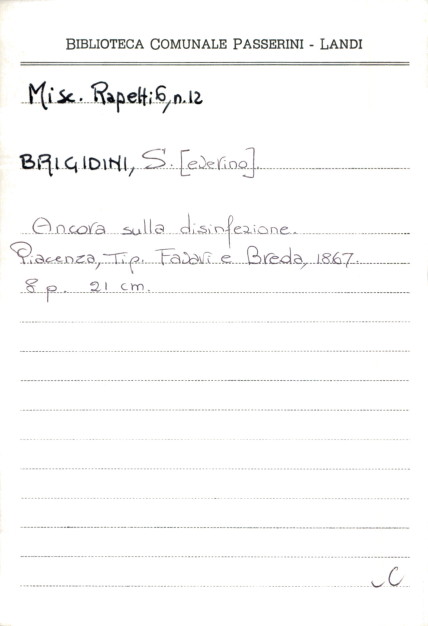 BIBLIOTECA COMUNALE PASSERINI - LANDI
Misc. Rapetti 6, n. 12
BRIGIDINI, S. [everino].
Ancora sulla disinfezione.
Piacenza, Tip. e Breda, 1867.
8 p. 21 cm.